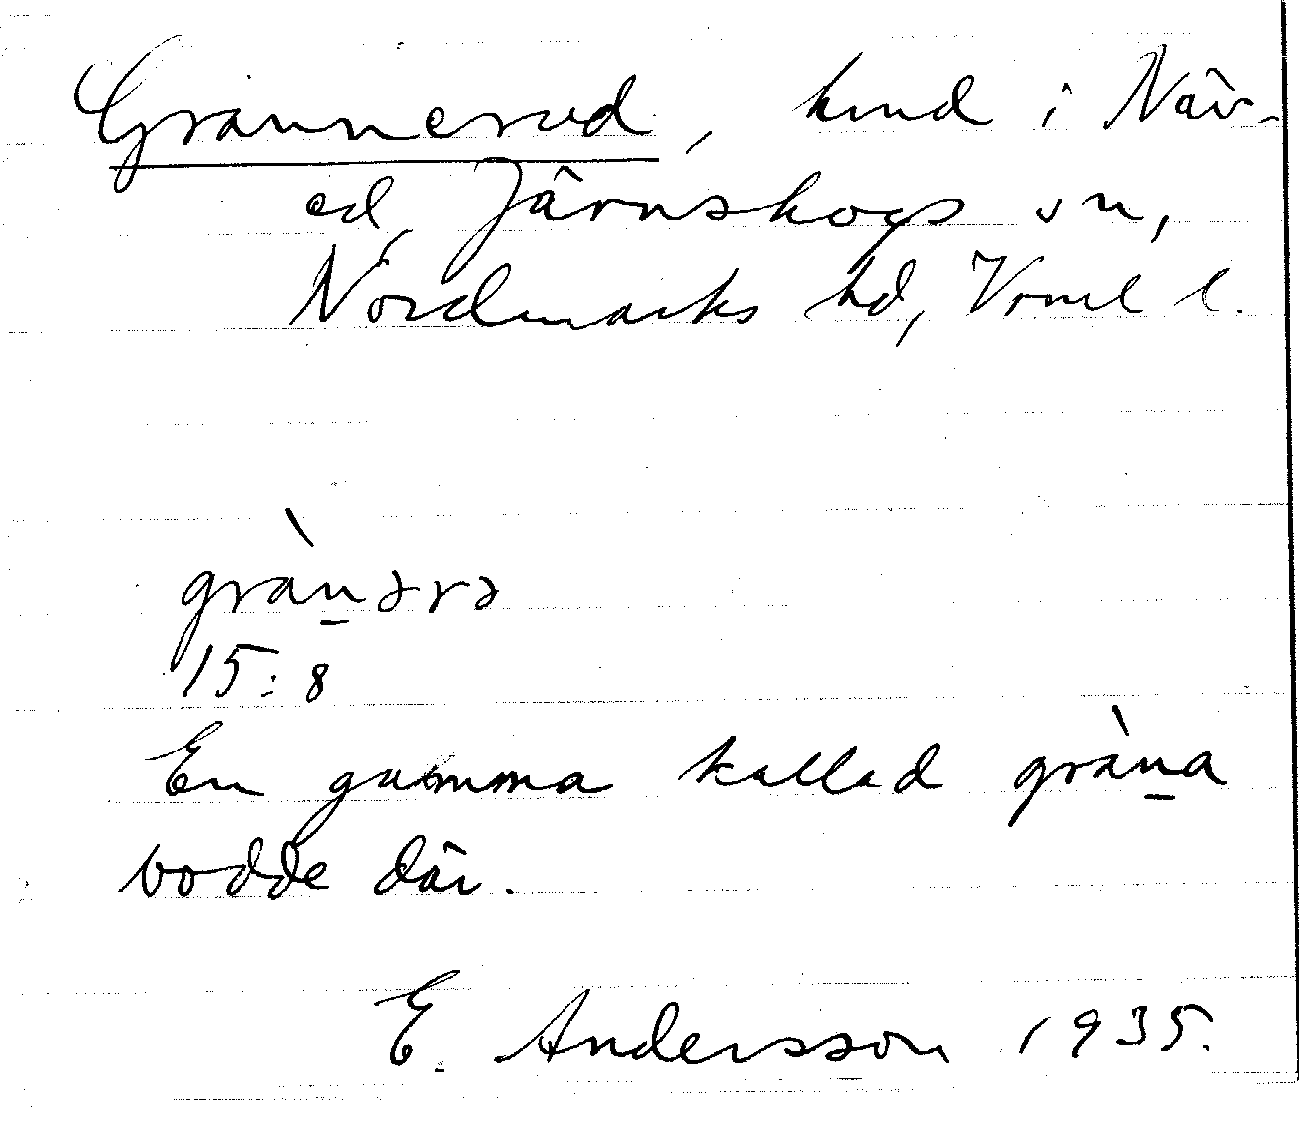 Grannerud, hmd i Näv-
ed, Järnskogs sn,
Nordmarks hd, Vrml l.
grànərə
15:8
En gumma kallad gràna
bodde där.
E. Andersson 1935.